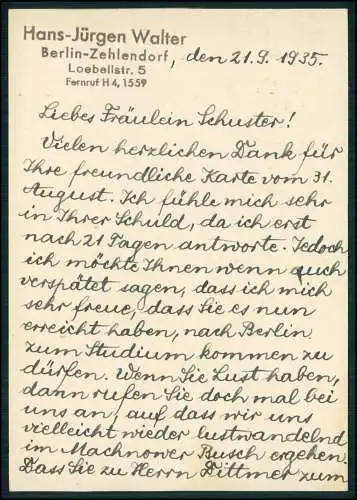 Hans-Jürgen Walter
Berlin-Zehlendorf, den 21.9.1935.
Loebellstr. 5
Fernruf H4, 1559
Liebes Fräulein Schuster!
Vielen herzlichen Dank für
Ihre freundliche Karte vom 31.
August. Ich fühle mich sehr
in Ihrer Schuld, da ich erst
nach 21 Tagen antworte. Jedoch
ich möchte Ihnen wenn auch
verspätet sagen, dass ich mich
sehr freue, dass Sie es nun
erreicht haben, nach Berlin
zum Studium kommen zu
dürfen. Wenn Sie Lust haben,
dann rufen Sie doch mal bei
uns an, auf dass wir uns
vielleicht wieder lustwandelnd
im Machnower Busch ergehen.
Dass Sie zu Herrn Dittmer zum